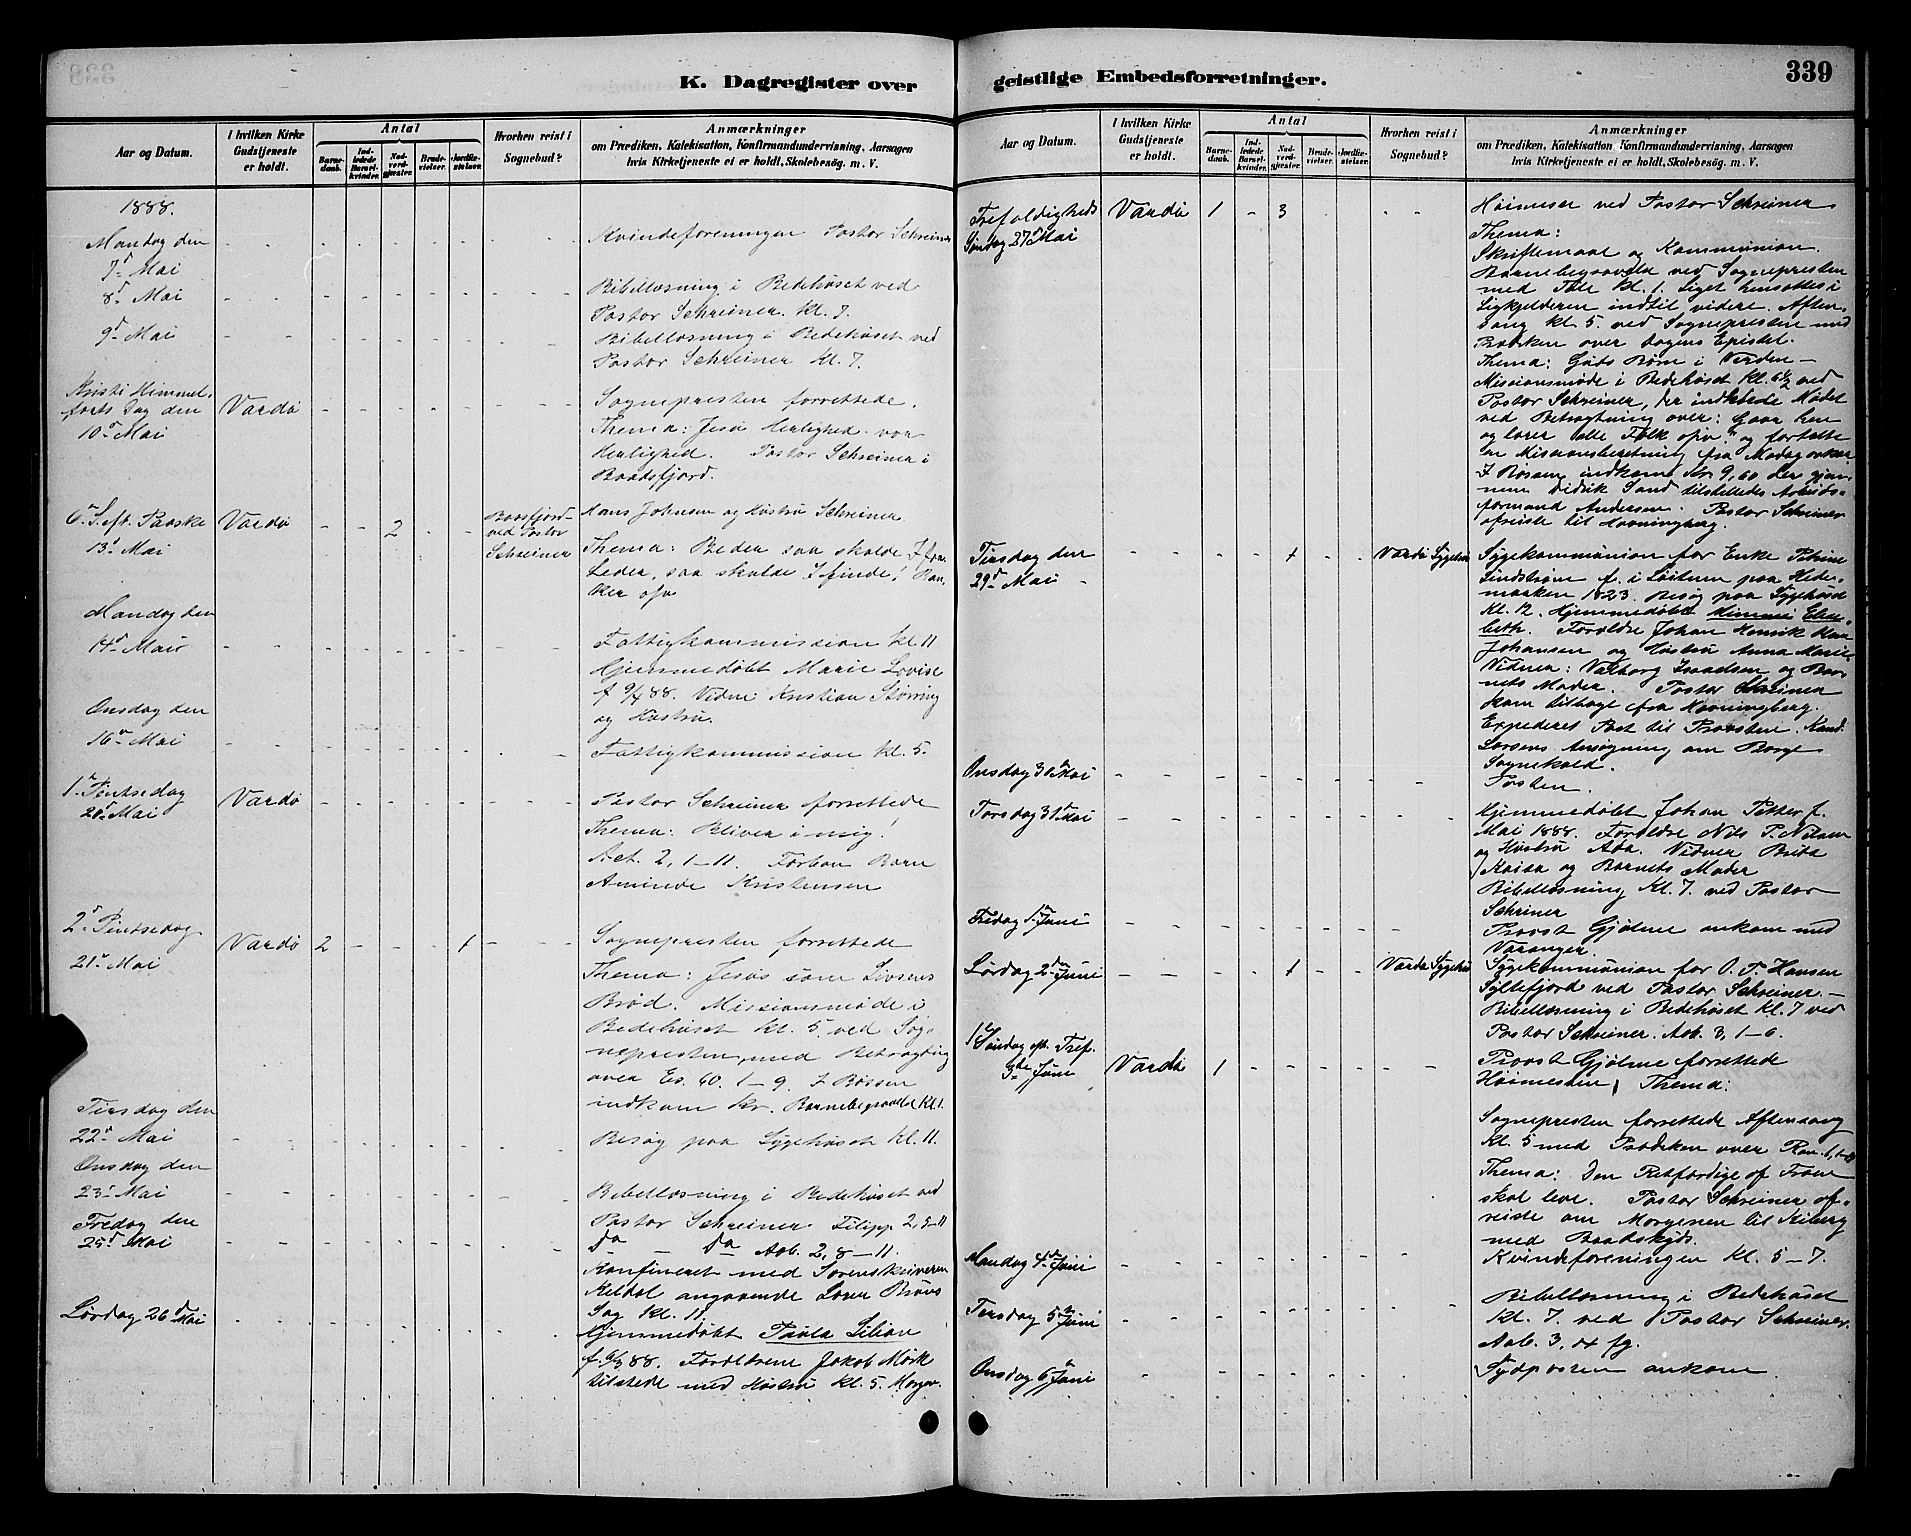 K. Dagregister over
Aar og Datum.
I hvilken Kirke
Gudstjeneste
er holdt.
Antal
Barne-
daab.
Ind-
ledede
Barsel-
kvinder.
Nad-
verd-
gjester.
Brude-
vielser.
Jordfæ-
stelser.
Hvorhen reist i
Sognebud?
Anmærkninger
om Prædiken, Katekisation, Konfirmandundervisning, Aarsagen
hvis Kirketjeneste ei er holdt, Skolebesøg. m. V.
1888.
Mandag den
7d Mai
Kvindeforeningen Pastor Schreiner
8d Mai
Bibellæsning i Bedehuset ved
Pastor Schreiner kl. 7.
9d Mai
Bibellæsning i Bedehuset ved
Pastor Schreiner kl. 7.
Kristi Himmel-
farts Dag den
10d Mai
Vardø
Sognepresten forrettede.
Thema: Jesu Herlighed vor
Herlighed. Pastor Schreiner i
Baadsfjord.
6te S. eft. Paaske
13d Mai
Vardø - - 2 - -
Baadsfjord
ved Pastor
Schreiner
Hans Johnsen og Hustru Schreiner
Thema: Beder saa skulde I
Leder, saa skulde I finde!
Mandag den
14d Mai
Fattigkommission kl 11
Hjemmedøbt Marie Lovise
f 9/4 88. Vidne Kristian Størring
og Hustru.
Onsdag den
16d Mai
Fattigkommission kl. 5.
1ste Pintsedag
20d Mai
Vardø
Pastor Schreiner forrettede
Thema: Bliver i mig!
Act. 2, 1-11. Forbøn Karn
Aminde Kristensen
2den Pintsedag
21d Mai
Vardø 2 - - - 1
Sognepresten forrettede
Thema: Jesus som Livsens
Brød. Missionsmøde i
Bedehuset kl. 5 ved Sog-
nepresten med Betragtning
over Es. 60. 1-9. I Bøssen
indkom kr. Barnebegravelse kl. 1.
Tirsdag den
22d Mai
Besøg paa Sygehuset kl. 11.
Onsdag den
23d Mai
Bibellæsning i Bedehuset ved
Pastor Schreiner Filipp. 2, 5-11
Fredag den
25d Mai
Do - Do Aab. 2, 8-11.
Konfereret med Sorenskriveren
Keldal angaaende Lærer Bruns
Sag kl. 11.
Lørdag 26d Mai
Hjemmedøbt Paula Lilian
f. 6/3 88. Forældrene Jakob Mørk
tilstede med Hustru kl. 5. Morgen.
geistlige Embedsforretninger.
339
Aar og Datum.
I hvilken Kirke
Gudstjeneste
er holdt.
Antal
Barne-
daab.
Ind-
ledede
Barsel-
kvinder.
Nad-
verd-
gjester.
Brude-
vielser.
Jordfæ-
stelser.
Hvorhen reist i
Sognebud?
Anmærkninger
om Prædiken, Katekisation, Konfirmandundervisning, Aarsagen
hvis Kirketjeneste ei er holdt, Skolebesøg. m. V.
Trefoldigheds
Søndag 27d Mai
Vardø 1 - 3
Høimesse ved Pastor Schreiner
Thema:
Skriftemaal og Kommunion.
Barnebegravelse ved Sognepresten
med Tale kl. 1. Liget hensattes i
Ligkjelderen indtil videre. Aften-
sang kl. 5. ved Sognepresten med
Præken over Dagens Epistel.
Thema: Guds Børn i Verden -
Missionsmøde i Bedehuset kl. 6 1/2 ved
Pastor Schreiner, der indledede Mødet
ved Betragtning over: Gaar hen
og lærer alle Folk osv. og fortalte
en Missionsberetning fra Madagaskar
I Bøssen indkom Kr 9,60 der gjen-
nem Didrik Sand tilstilledes Arbeids-
formand Andersen. Pastor Schreiner
afreiste til Havningberg.
Tirsdag den
29d Mai
1
Vardø Sygehus
Sygekommunion for Enke Petrine
Lindstrøm f. i Løiten paa Hede-
marken 1823. Besøg paa Sygehuset
kl. 12. Hjemmedøbt Mimmi Elisa-
beth. Forældre Johan Henrik
Johansen og Hustru Anna Marie
Vidner: Valborg Isaksen og Bar-
nets Moder. Pastor Schreiner
kom tilbage fra Havningberg.
Expederet Post til Provsten. Kand.
Larsens Ansøgning om Borge
Sognekald.
Onsdag 30d Mai
Posten.
Torsdag 31d Mai
Hjemmedøbt Johan Petter f.
Mai 1888. Forældre Nils P. Nilsen
og Hustru Ada. Vidner Brita
Kaisa og Barnets Moder
Bibellæsning kl. 7. ved Pastor
Schriner
Fredag 1ste Juni
Provst Gjølme ankom med
Varanger.
Lørdag 2den Juni
1
Vardø Sygehus
Sygekommunion for O. P. Hansen
Syltefjord ved Pastor Schreiner. -
Bibellæsning i Bedehuset kl. 7 ved
Pastor Schreiner. Aab. 3, 1-6.
1ste Søndag eft. Tref.
3die Juni
Vardø 1
Provst Gjølme forrettede
Høimessen, Thema:
Sognepresten forrettede Aftensang
kl. 5 med Præken over Rom.
Thema: Den Retfærdige af Troen
skal leve. Pastor Schreiner af-
reiste om Morgenen til Kiberg
med Baadskyds.
Mandag 4de Juni
Kvindeforeningen kl. 5-7.
Tirsdag 5te Juni
Bibellæsning i Bedehuset
kl. 7. ved Pastor Schreiner.
Aab. 3,
Onsdag 6te Juni
Sydposten ankom